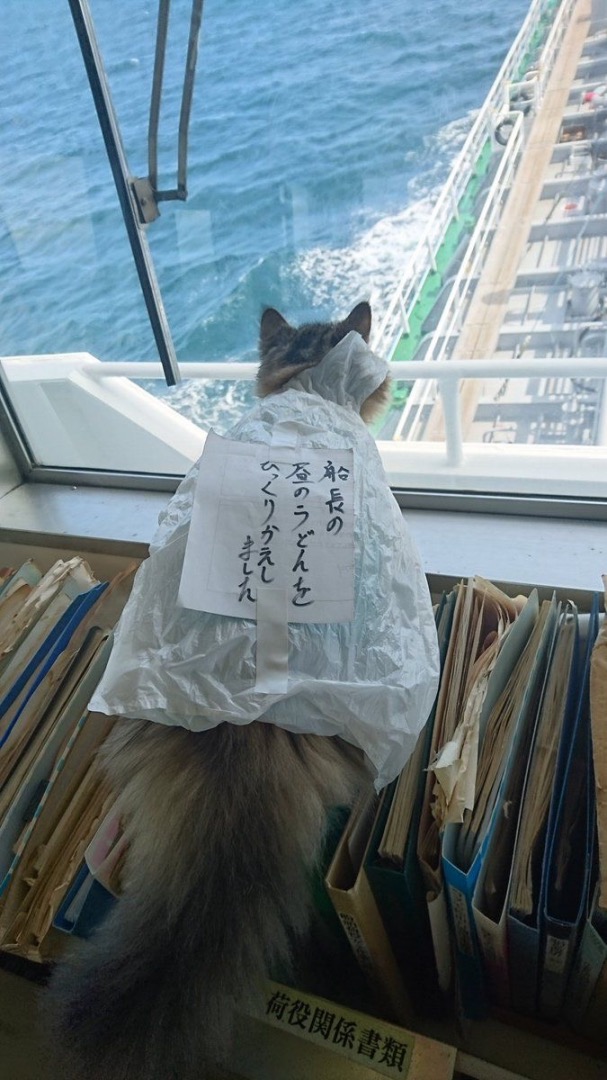 船長の
昼のうどんを
ひっくりかえし
ました
荷役関係書類